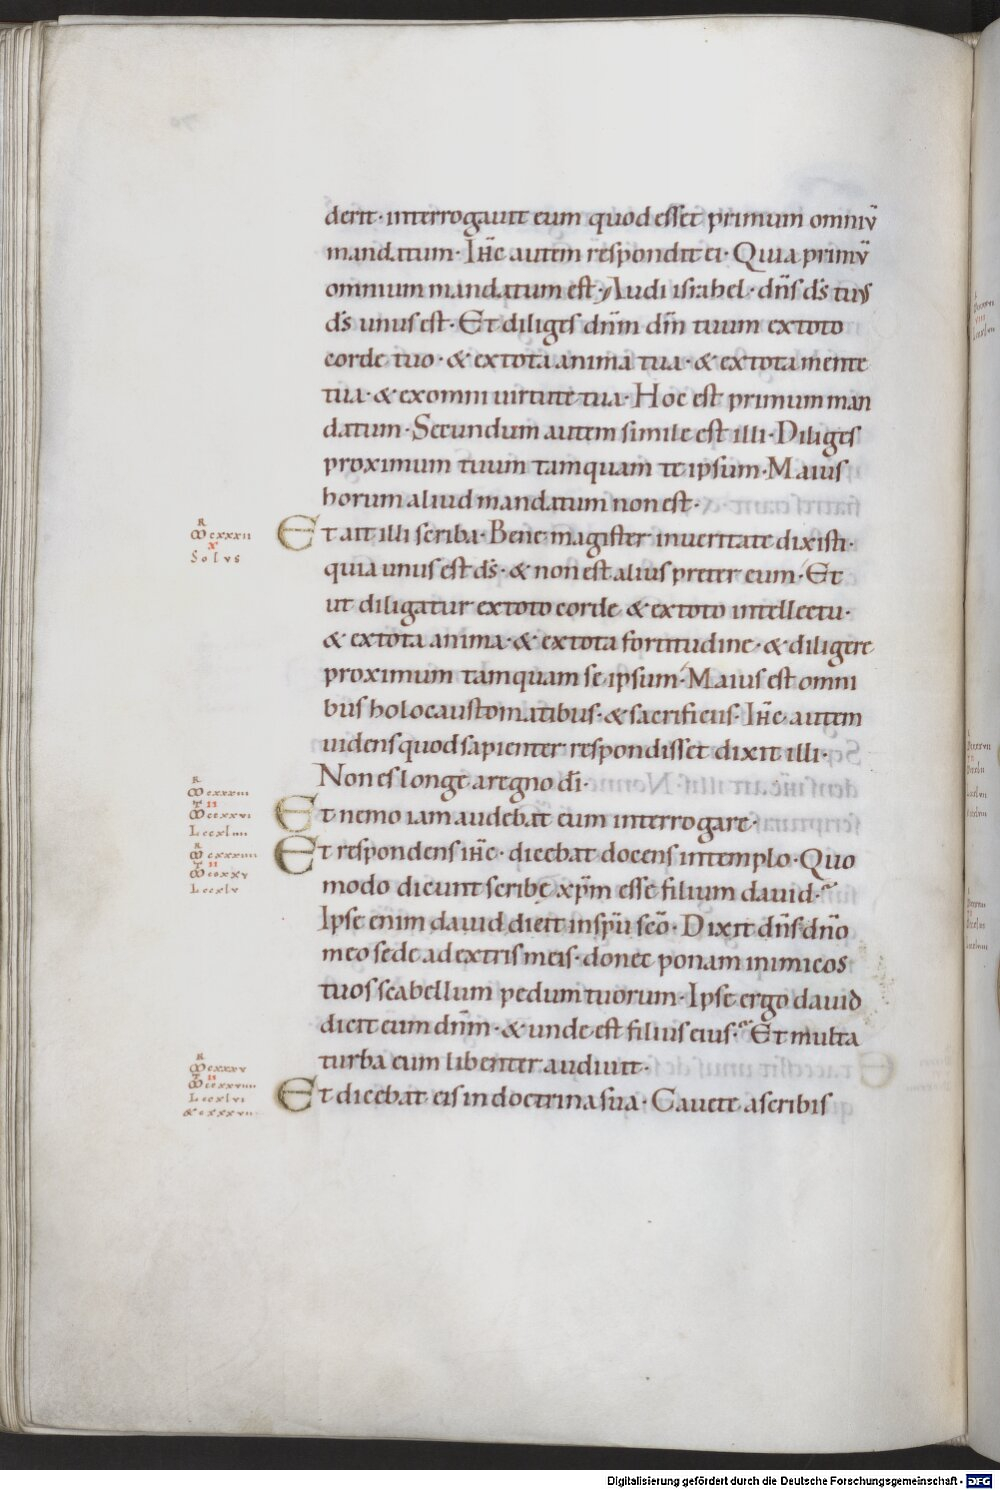 derit· interrogauit eum quod esset primum omniū
mandatum· Ihc̄ autem respondit ei· Quia primū
omnium mandatum est· Audi israhel· dn̄s ds̄ tuus
ds̄ unus est· Et diliges dn̄m dm̄ tuum ex toto
corde tuo· & ex tota anima tua· & ex tota mente
tua· & ex omni uirtute tua· Hoc est primum man
datum· Secundum autem simile est illi· Diliges
proximum tuum tamquam te ipsum· Maius
horum aliud mandatum non est·
R
M cxxxii
X
Solus
Et ait illi scriba· Bene magister in ueritate dixisti·
quia unus est ds̄· & non est alius preter eum· Et
ut diligatur ex toto corde & ex toto intellectu·
& ex tota anima· & ex tota fortitudine· & diligere
proximum tamquam se ipsum· Maius est omni
bus holocaustomatibus· & sacrificiis· Ihc̄ autem
uidens quod sapienter respondisset dixit illi·
Non es longe a regno dī·
R
M cxxxiii
T II
M ccxxvi
L ccxliiii
Et nemo iam audebat eum interrogare·
R
M cxxxiiii
T II
M ccxxv
L ccxlv
Et respondens ihc̄· dicebat docens in templo· Quo
modo dicunt scribę xp̄m esse filium dauid·
Ipse enim dauid dicit in spū scō· Dixit dn̄s dn̄o
meo sede a dextris meis· donec ponam inimicos
tuos scabellum pedum tuorum· Ipse ergo dauid
dicit eum dn̄m· & unde est filius eius· Et multa
turba eum libenter audiuit·
R
M cxxxv
T II
M ccxxviiii
L ccxlvi
& cxxxvii
Et dicebat eis in doctrina sua· Cauete a scribis
Digitalisierung gefördert durch die Deutsche Forschungsgemeinschaft - DFG